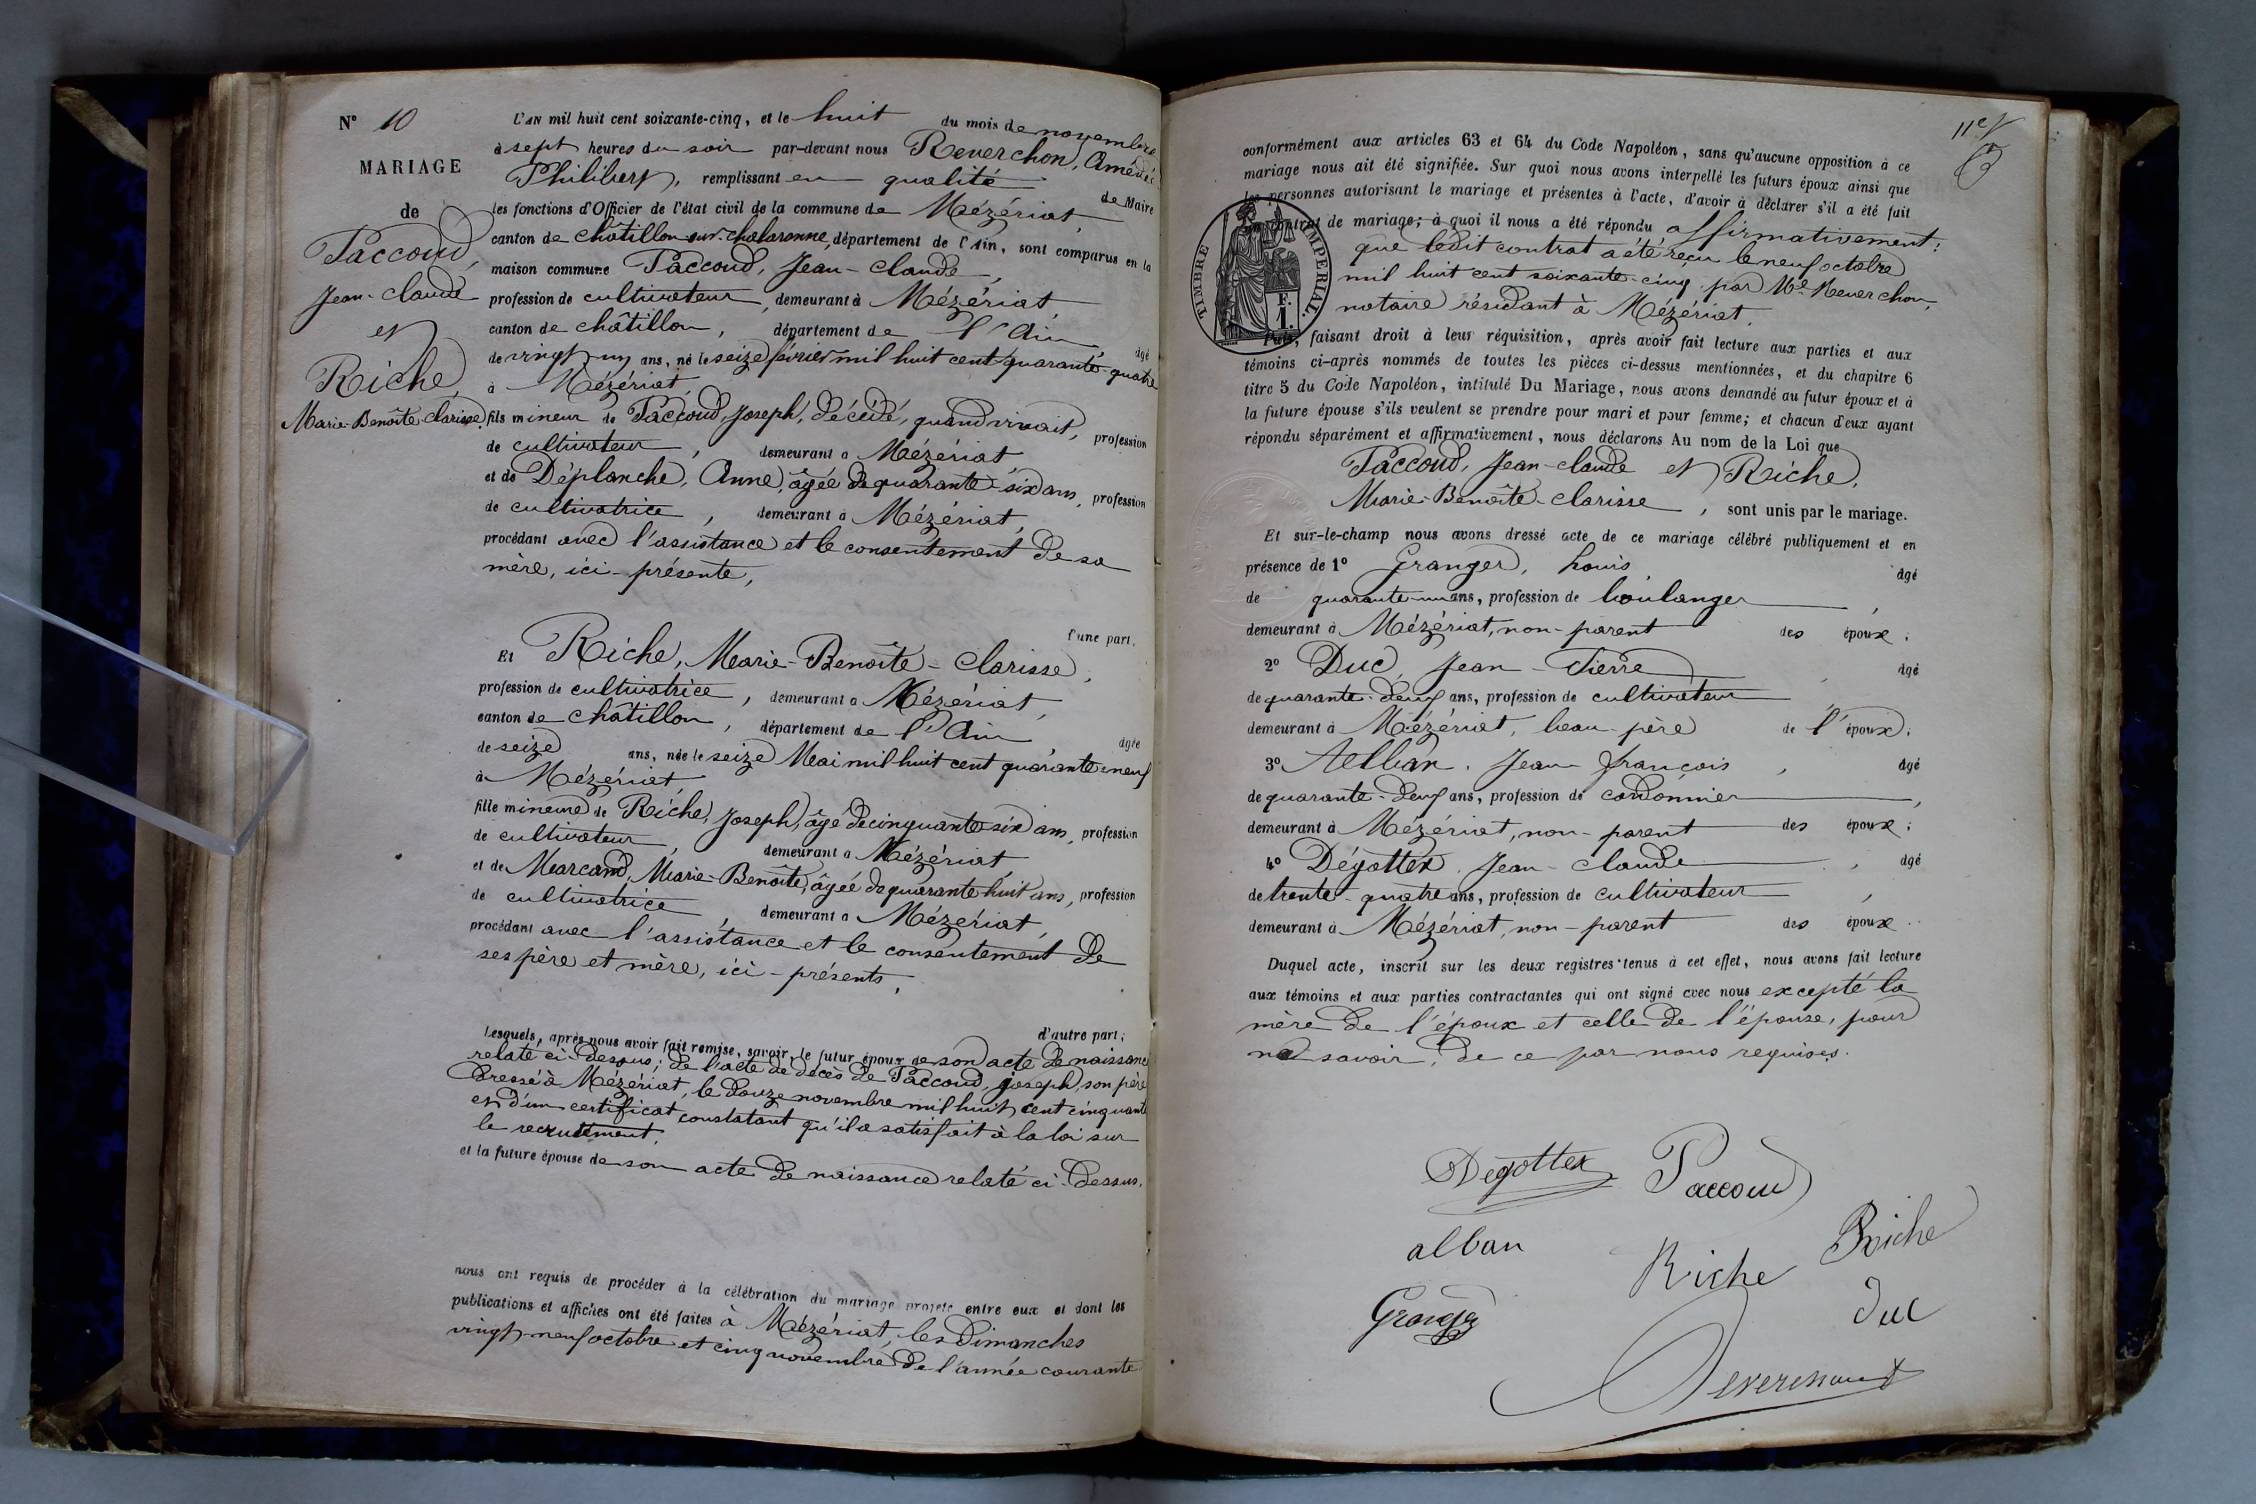 N° 10
MARIAGE
de
Paccoud,
Jean-Claude
et
Riche,
Marie-Benoîte-Clarisse.
L'AN mil huit cent soixante-cinq, et le huit du mois de novembre
à sept heures du soir par-devant nous Reverchon, Amédée
Philibert, remplissant en qualité de Maire
les fonctions d'Officier de l'état civil de la commune de Mézériat,
canton de Châtillon-sur-Chalaronne, département de l'Ain, sont comparus en la
maison commune Paccoud, Jean-Claude,
profession de cultivateur, demeurant à Mézériat,
canton de Châtillon, département de l'Ain, âgé
de vingt-un ans, né le seize février mil huit cent quarante-quatre
à Mézériat,
fils mineur de Paccoud, Joseph, décédé, quand vivait, profession
de cultivateur, demeurant à Mézériat
et de Déplanche, Anne, âgée de quarante-six ans, profession
de cultivatrice, demeurant à Mézériat,
procédant avec l'assistance et le consentement de sa
mère, ici-présente,
d'une part,
Et Riche, Marie-Benoîte-Clarisse,
profession de cultivatrice, demeurant à Mézériat,
canton de Châtillon, département de l'Ain âgée
de seize ans, née le seize Mai mil huit cent quarante-neuf
à Mézériat,
fille mineure de Riche, Joseph, âgé de cinquante-six ans, profession
de cultivateur, demeurant à Mézériat,
et de Marcand, Marie-Benoîte, âgée de quarante-huit ans, profession
de cultivatrice, demeurant à Mézériat,
procédant avec l'assistance et le consentement de
ses père et mère, ici-présents,
d'autre part;
Lesquels, après nous avoir fait remise, savoir, le futur époux de son acte de naissance
relaté ci-dessus; de l'acte de décès de Paccoud, Joseph, son père
dressé à Mézériat, le douze novembre mil huit cent cinquante
et d'un certificat constatant qu'il a satisfait à la loi sur
le recrutement,
et la future épouse de son acte de naissance relaté ci-dessus.
nous ont requis de procéder à la célébration du mariage projeté entre eux et dont les
publications et affiches ont été faites à Mézériat, les Dimanches
vingt-neuf octobre et cinq novembre de l'année courante
conformément aux articles 63 et 64 du Code Napoléon, sans qu'aucune opposition à ce
mariage nous ait été signifiée. Sur quoi nous avons interpellé les futurs époux ainsi que
les personnes autorisant le mariage et présentes à l'acte, d'avoir à déclarer s'il a été fait
un contrat de mariage; à quoi il nous a été répondu affirmativement:
que ledit contrat a été reçu le neuf octobre
mil huit cent soixante-cinq par Me Reverchon,
notaire résidant à Mézériat.
TIMBRE IMPERIAL.
1 F.
Puis, faisant droit à leur réquisition, après avoir fait lecture aux parties et aux
témoins ci-après nommés de toutes les pièces ci-dessus mentionnées, et du chapitre 6
titre 5 du Code Napoléon, intitulé Du Mariage, nous avons demandé au futur époux et à
la future épouse s'ils veulent se prendre pour mari et pour femme; et chacun d'eux ayant
répondu séparément et affirmativement, nous déclarons Au nom de la Loi que
Paccoud, Jean-Claude et Riche,
Marie-Benoîte-Clarisse, sont unis par le mariage.
Et sur-le-champ nous avons dressé acte de ce mariage célébré publiquement et en
présence de 1° Granger, Louis âgé
de quarante-un ans, profession de boulanger,
demeurant à Mézériat, non-parent des époux;
2° Duc, Jean-Pierre, âgé
de quarante-deux ans, profession de cultivateur,
demeurant à Mézériat, beau-père de l'époux;
3° Alban, Jean François, âgé
de quarante-deux ans, profession de cordonnier,
demeurant à Mézériat, non-parent des époux;
4° Dégottex, Jean-Claude, âgé
de trente-quatre ans, profession de cultivateur,
demeurant à Mézériat, non-parent des époux.
Duquel acte, inscrit sur les deux registres tenus à cet effet, nous avons fait lecture
aux témoins et aux parties contractantes qui ont signé avec nous excepté la
mère de l'époux et celle de l'épouse, pour
ne savoir, de ce par nous requises.
Dégottex Paccoud
alban Riche Riche
Granger duc
Reverchon